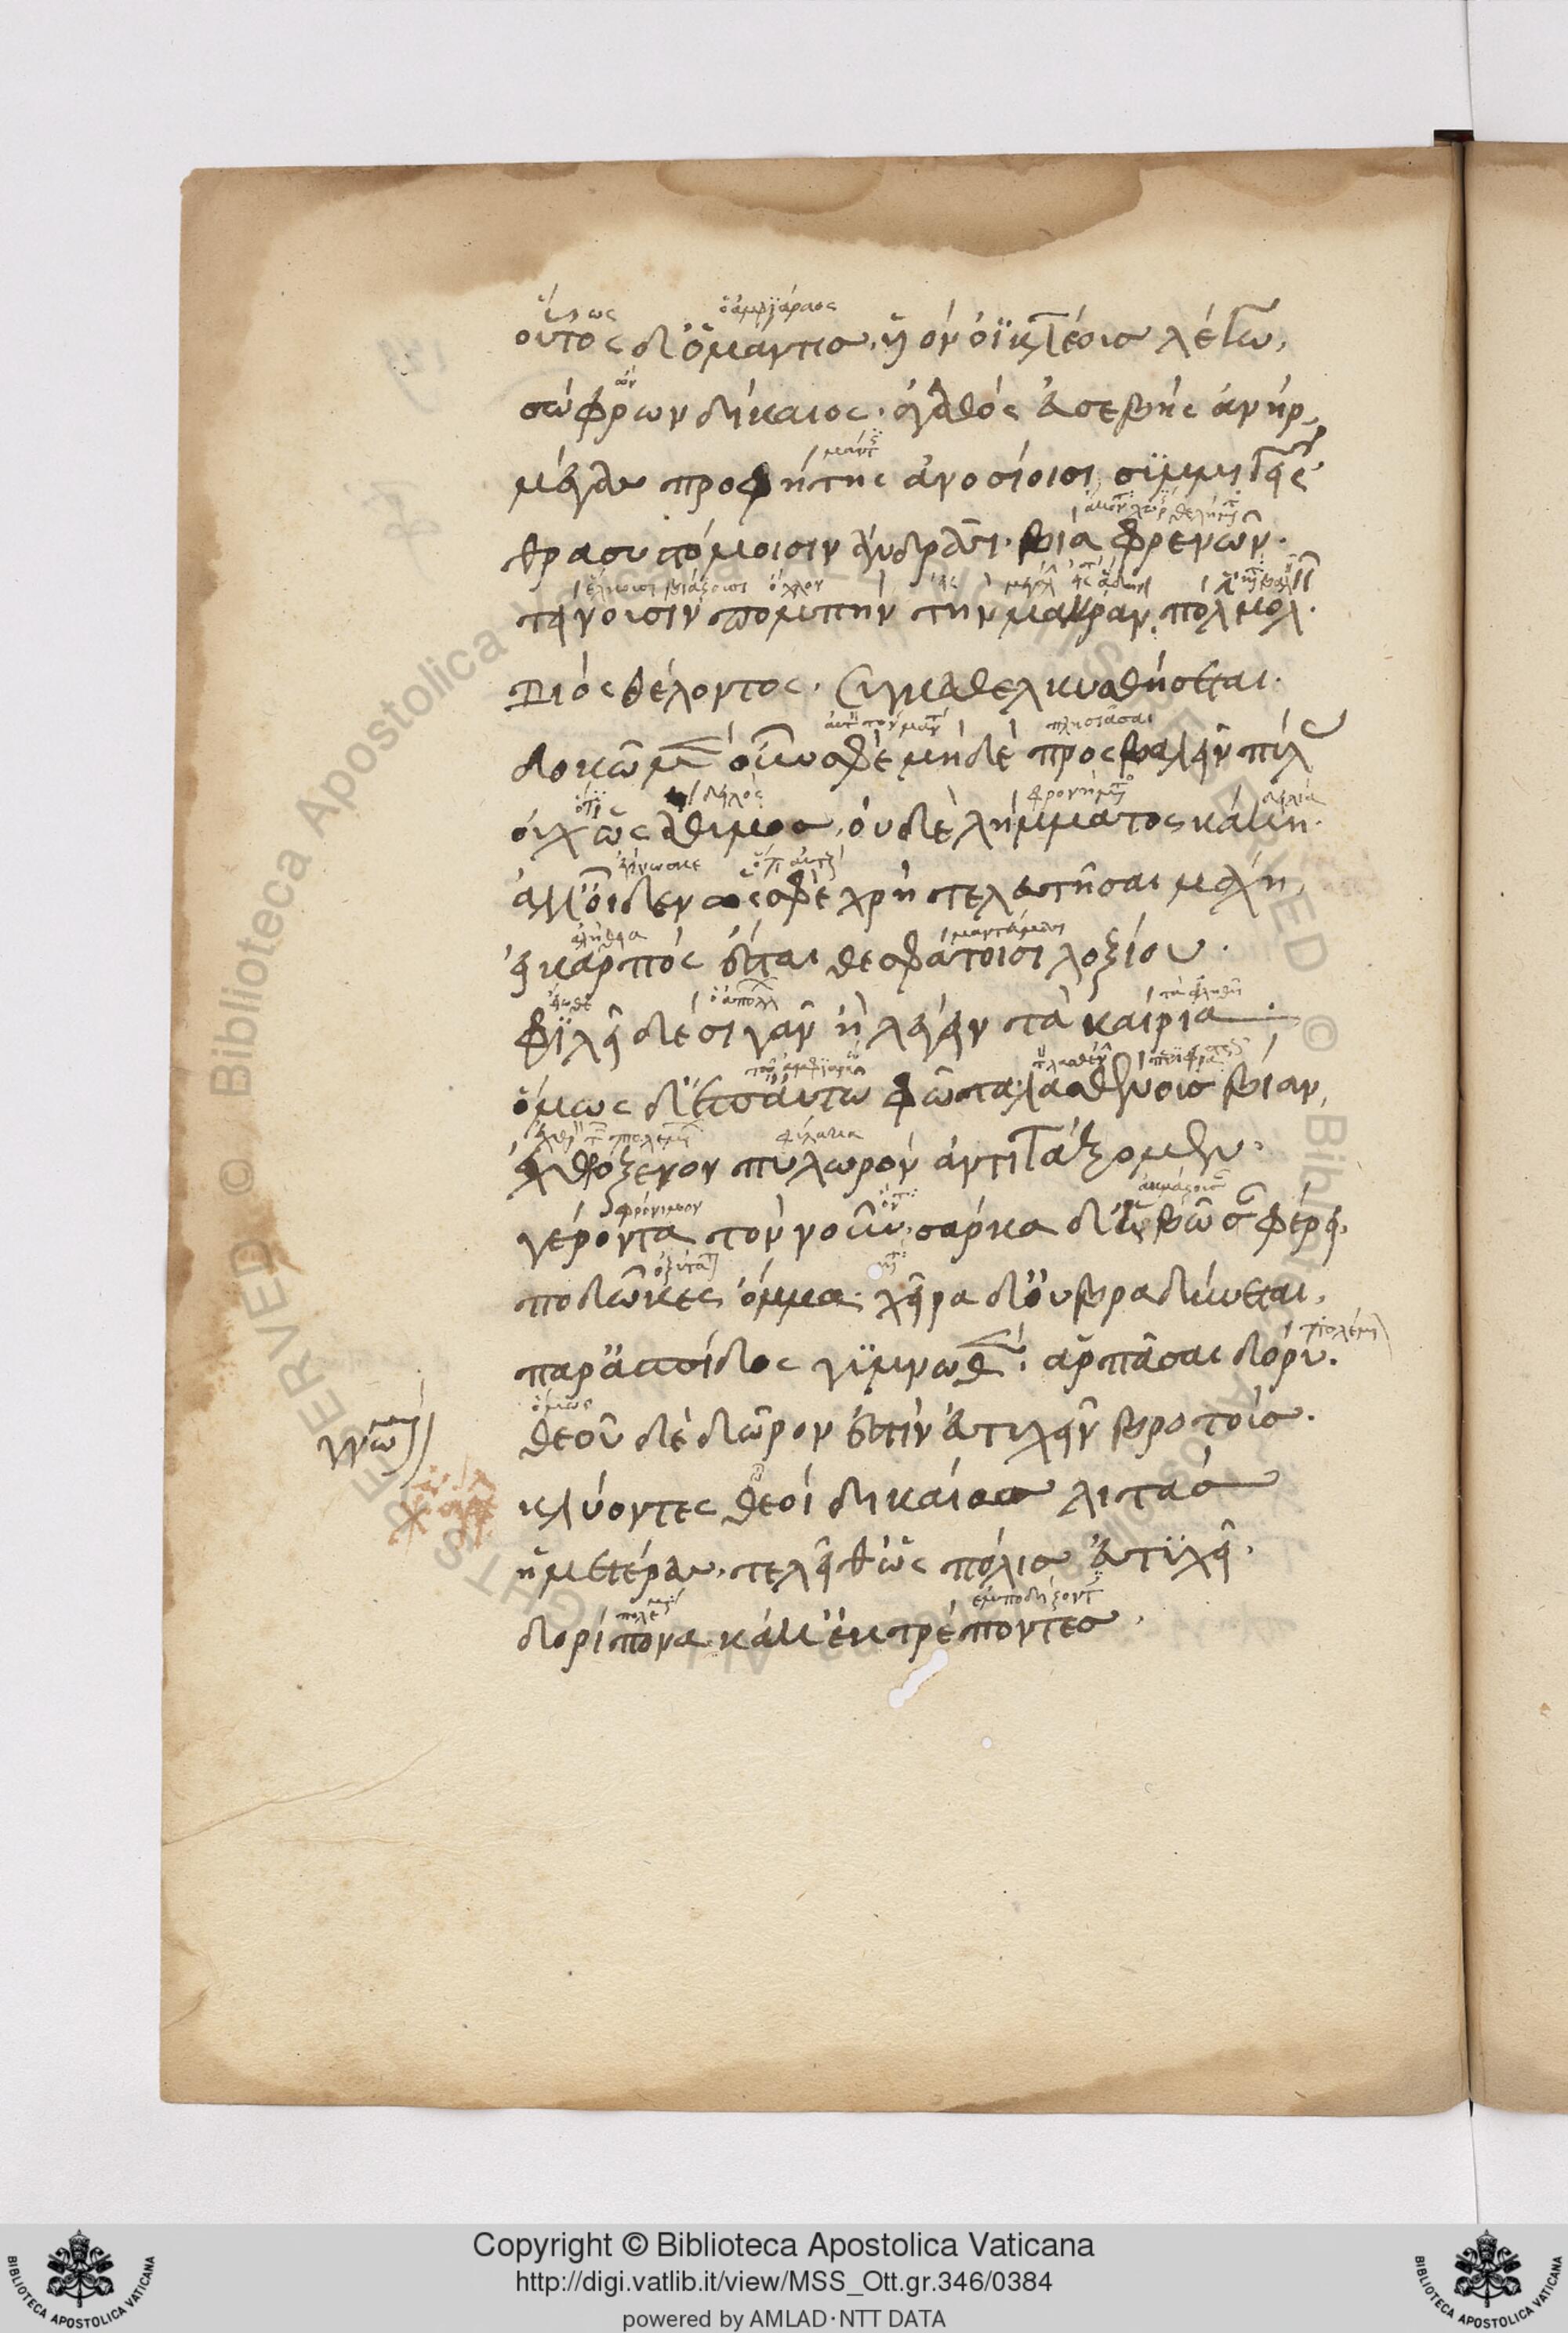 ὅμως ὁ ἀμφιάραος
οὗτος δ' ὁ μάντις, υἱὸν οἰκλέους λέγω,
ὢν
σώφρων δίκαιος· ἀγαθὸς εὐσεβὴς ἀνήρ,
μάντις
μέγας προφήτης ἀνοσίοισι συμμιγεὶς
θρασυστόμοισιν ἀνδράσι· βίᾳ φρενῶν·
ὄχλον
τείνουσιν πομπὴν τὴν μακρὰν πάλιν μολεῖν.
Διὸς θέλοντος· συγκαθελκυσθήσεται.
πλησιάσαι
δοκῶ μὲν οὖν σφὲ μηδὲ προσβαλεῖν πύλαις
ὅτι δειλὸς φρονήματος δειλία
οὐχ ὡς ἄθυμος, οὐδὲ λήμματος κάκῃ.
ἐγίνωσκε ὅτι αὐτὸν
ἀλλ' οἶδεν ὥς σφε χρὴ τελευτῆσαι μάχῃ,
ἀλήθεια
εἰ καρπὸς ἔσται θεσφάτοισι λοξίου.
ὁ ἀπόλλων
φιλεῖ δὲ σιγᾶν ἢ λέγειν τὰ καίρια
ὅμως δ' ἐπ' αὐτῷ φῶτα λασθένους βίαν,
φύλακα
ἐχθρόξενον πυλωρὸν ἀντιτάξομεν.
φρόνιμον
γέροντα τὸν νοῦν· σάρκα δ' ἡβῶσαν φέρει.
ποδῶκες ὄμμα· χεῖρα δ' οὐ βραδύνεται,
παρ' ἀσπίδος γυμνωθὲν ἁρπάσαι δόρυ.
ὅμως
γνώμη
θεοῦ δὲ δῶρον ἐστὶν εὐτυχεῖν βροτοῖς.
κλύοντες θεοὶ δικαίας λιτὰς
ἡμετέρας· τελεῖθ' ὡς πόλις εὐτυχῇ.
ἐμποδίζοντες
δορίπονα κάκ' ἐκτρέποντες.
Copyright © Biblioteca Apostolica Vaticana
http://digi.vatlib.it/view/MSS_Ott.gr.346/0384
powered by AMLAD·NTT DATA